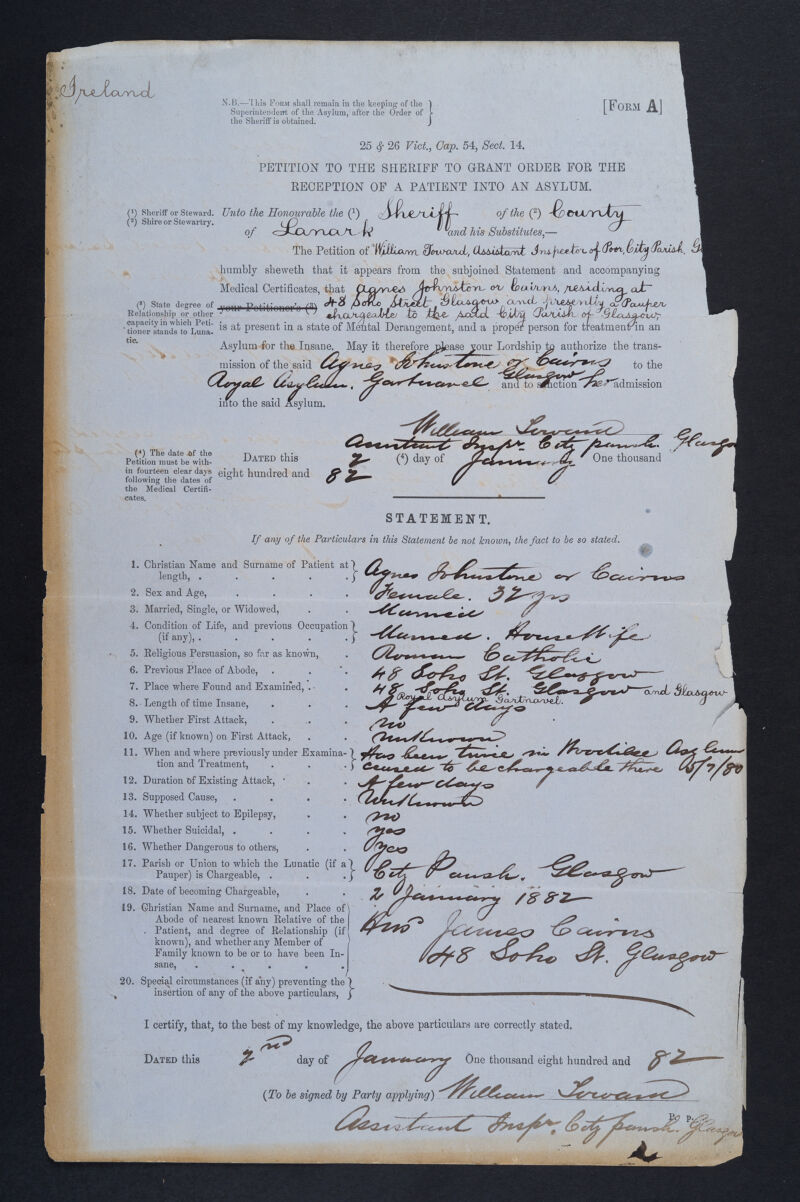 Ireland
N.B.—This Form shall remain in the keeping of the
Superintendent of the Asylum, after the Order of
the Sheriff is obtained.
[Form A]
25 & 26 Vict., Cap. 54, Sect. 14.
PETITION TO THE SHERIFF TO GRANT ORDER FOR THE
RECEPTION OF A PATIENT INTO AN ASYLUM.
(1) Sheriff or Steward.
(2) Shire or Stewartry.
Unto the Honourable the (1) Sheriff of the (2) County
of Lanark and his Substitutes,—
The Petition of William Toward, Assistant Inspector of Poor, City Parish, Gl
humbly sheweth that it appears from the subjoined Statement and accompanying
Medical Certificates, that Agnes Johnston or Cairns, residing at
(3) State degree of
Relationship or other
capacity in which Peti-
tioner stands to Luna-
tic.
your Petitioner's (3) 48 Soho Street, Glasgow and presently a Pauper
chargeable to the said City Parish of Glasgow,
is at present in a state of Mental Derangement, and a proper person for treatment in an
Asylum for the Insane. May it therefore please your Lordship to authorize the trans-
mission of the said Agnes Johnstone or Cairns to the
Royal Asylum. Gartnavel Glasgow and to sanction her admission
into the said Asylum.
William Toward
Assistant Inspr. City parish. Glasgo
(4) The date of the
Petition must be with-
in fourteen clear days
following the dates of
the Medical Certifi-
cates.
Dated this 2 (4) day of January One thousand
eight hundred and 82
STATEMENT.
If any of the Particulars in this Statement be not known, the fact to be so stated.
1. Christian Name and Surname of Patient at length, . Agnes Johnstone or Cairns
2. Sex and Age, Female. 32 yrs
3. Married, Single, or Widowed, Married
4. Condition of Life, and previous Occupation (if any), . Married. HouseWife
5. Religious Persuasion, so far as known, Roman Catholic
6. Previous Place of Abode, . 48 Soho St. Glasgow
7. Place where Found and Examined, . 48 Soho St. Glasgow and Glasgow
Royal Asylum Gartnavel.
8. Length of time Insane, A few days
9. Whether First Attack, no
10. Age (if known) on First Attack, . unknown
11. When and where previously under Examina-tion and Treatment, Has been twice in Woodilee Asylum
ceased to be chargeable there 5/7/80
12. Duration of Existing Attack, A few days
13. Supposed Cause, . Unknown
14. Whether subject to Epilepsy, no
15. Whether Suicidal, . yes
16. Whether Dangerous to others, yes
17. Parish or Union to which the Lunatic (if a Pauper) is Chargeable, . City Parish. Glasgow
18. Date of becoming Chargeable, 2 January 1882
19. Christian Name and Surname, and Place of
Abode of nearest known Relative of the
Patient, and degree of Relationship (if
known), and whether any Member of
Family known to be or to have been In-
sane, .
Husd James Cairns
48 Soho St. Glasgow
20. Special circumstances (if any) preventing the
insertion of any of the above particulars,
I certify, that, to the best of my knowledge, the above particulars are correctly stated.
Dated this 2nd day of January One thousand eight hundred and 82
(To be signed by Party applying) William Toward
Assistant Inspr. City parish. Glasgow